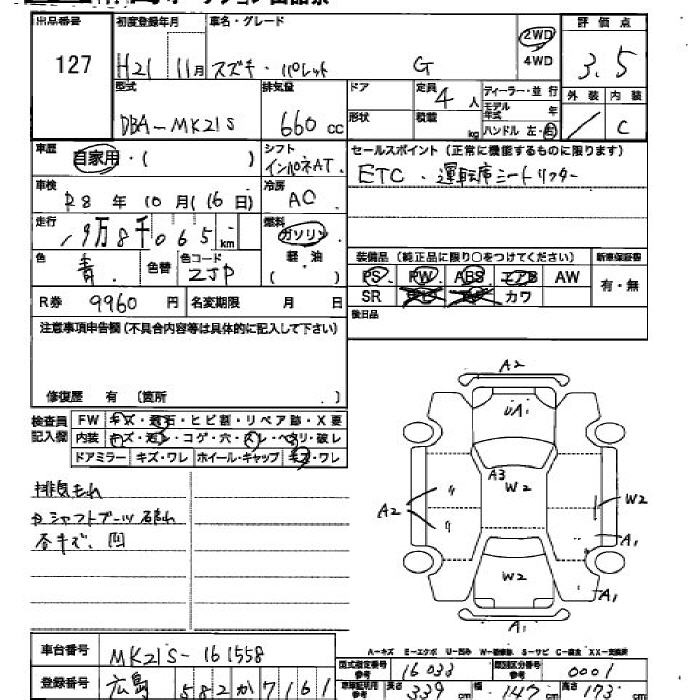 出品番号 127
初度登録年月 H21 11月
車名・グレード スズキ・パレット G
2WD
4WD
評価点 3.5
外装 内装 C
型式 DBA-MK21S
排気量 660 cc
ドア
形状
定員 4 人
積載 kg
ディーラー・並行
モデル年式 年
ハンドル 左・右
車歴 自家用・( )
シフト インパネAT
セールスポイント(正常に機能するものに限ります)
ETC・運転席シートリフター
車検 R8 年 10 月(16日)
冷房 AC
走行 19万8千065 km
燃料 ガソリン・軽油 ( )
色 青 色替 色コード ZJP
装備品(純正品に限り○をつけてください) 新車保証書
PS PW ABS エアB AW 有・無
SR カワ
R券 9960 円 名変期限 月 日
後日品
注意事項申告欄(不具合内容等は具体的に記入して下さい)
修復歴 有 (箇所 )
検査員記入欄
FW キズ・飛石・ヒビ割・リペア跡・X要
内装 キズ・コゲ・穴・スレ・ヘタリ・破レ
ドアミラー キズ・ワレ ホイール・キャップ キズ・ワレ
排気もれ
シャフトブーツ破れ
各キズ、凹
A2
UA1
A3
W2
W2
A2
W2
A1
A1
A1
A-キズ E-エクボ U-凹み W-補修跡 S-サビ C-腐食 XX-交換済
車台番号 MK21S-161558
型式指定番号 参考 16033 類別区分番号 参考 0001
登録番号 広島 582 か 7161
車庫証明用 参考 長さ 339 cm 幅 147 cm 高さ 173 cm